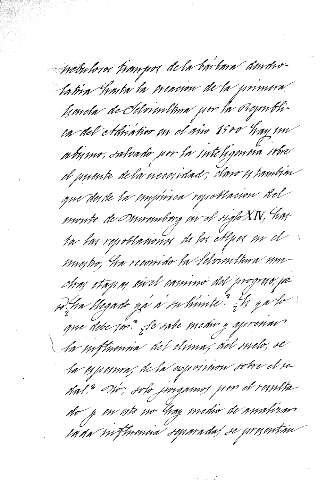 nebulosos tiempos de la bárbara dendro-
latria hasta la creacion de la primera
Escuela de Selvicultura por la Republi-
ca del Adriático en el año 1500 hay un
abismo, salvado por la inteligencia sobre
el puente de la necesidad; claro es tambien
que desde la empírica repoblacion del
monte de Nuremberg en el siglo XIV, has-
ta las repoblaciones de los Alpes en el
nuestro, ha recorrido la Selvicultura mu-
chas etapas en el camino del progreso; pe-
ro ¿ha llegado yá á su límite? ¿Es ya lo
que debe ser? ¿Se sabe medir y apreciar
la influencia del clima, del suelo, de
la espesura, de la exposicion sobre el ro-
dal? No; solo juzgamos por el resulta-
do y en este no hay medio de analizar
cada influencia separada; se presentan